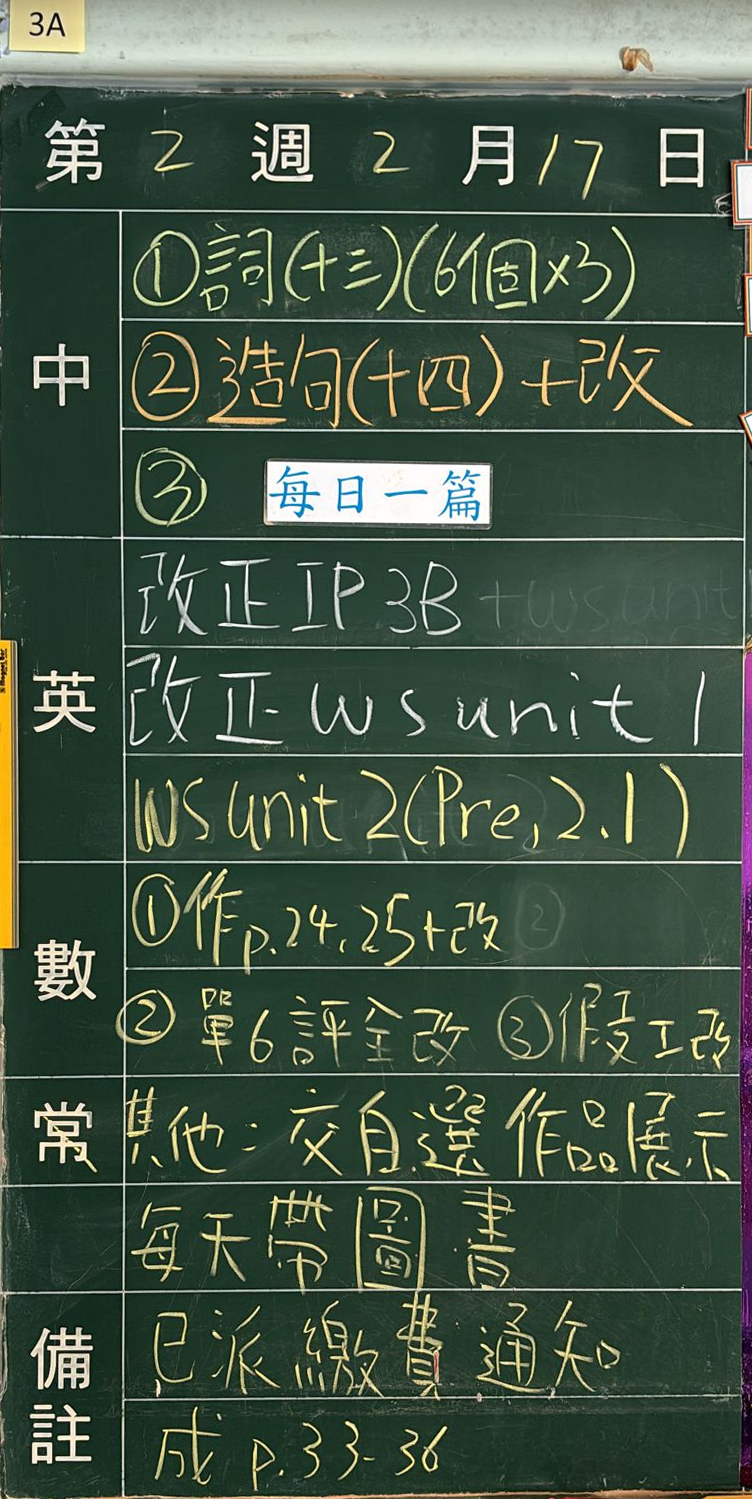 3A
第 2 週 2 月 17 日
中
①詞(十三)(6個×3)
②造句(十四)+改
③ 每日一篇
英
改正 IP 3B + ws unit
改正 ws unit 1
WS unit 2(Pre, 2.1)
數
①作p.24, 25+改 ②
② 單6評全改 ③假工改
常
其他:交自選作品展示
每天帶圖書
備註
已派繳費通知
成 p.33-36